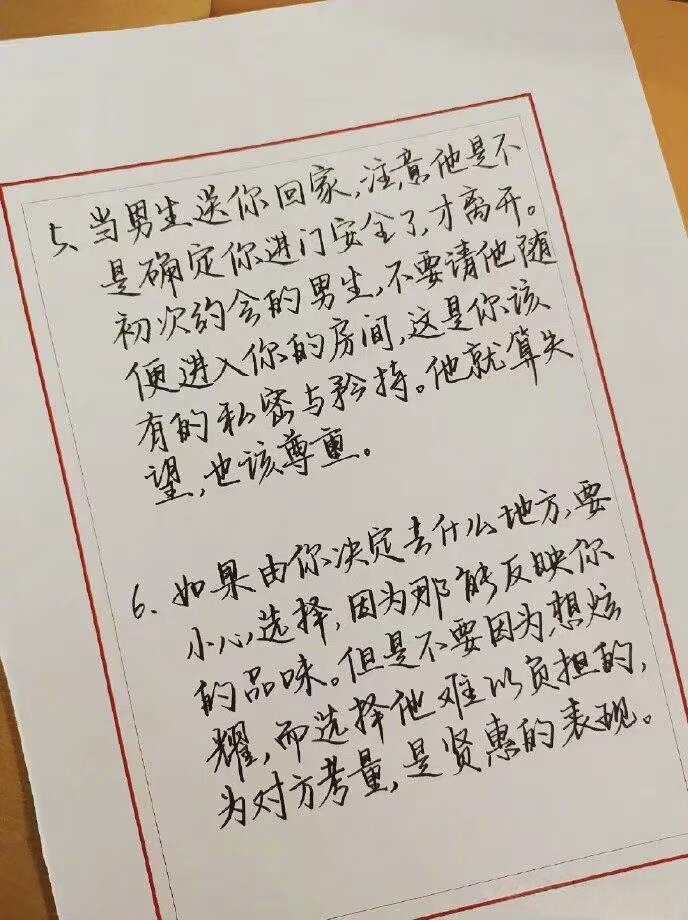 5、当男生送你回家,注意他是不
是确定你进门安全了,才离开。
初次约会的男生,不要请他随
便进入你的房间,这是你该
有的私密与矜持。他就算失
望,也该尊重。
6、如果由你决定去什么地方,要
小心选择,因为那能反映你
的品味。但是不要因为想炫
耀,而选择他难以负担的,
为对方考量,是贤惠的表现。